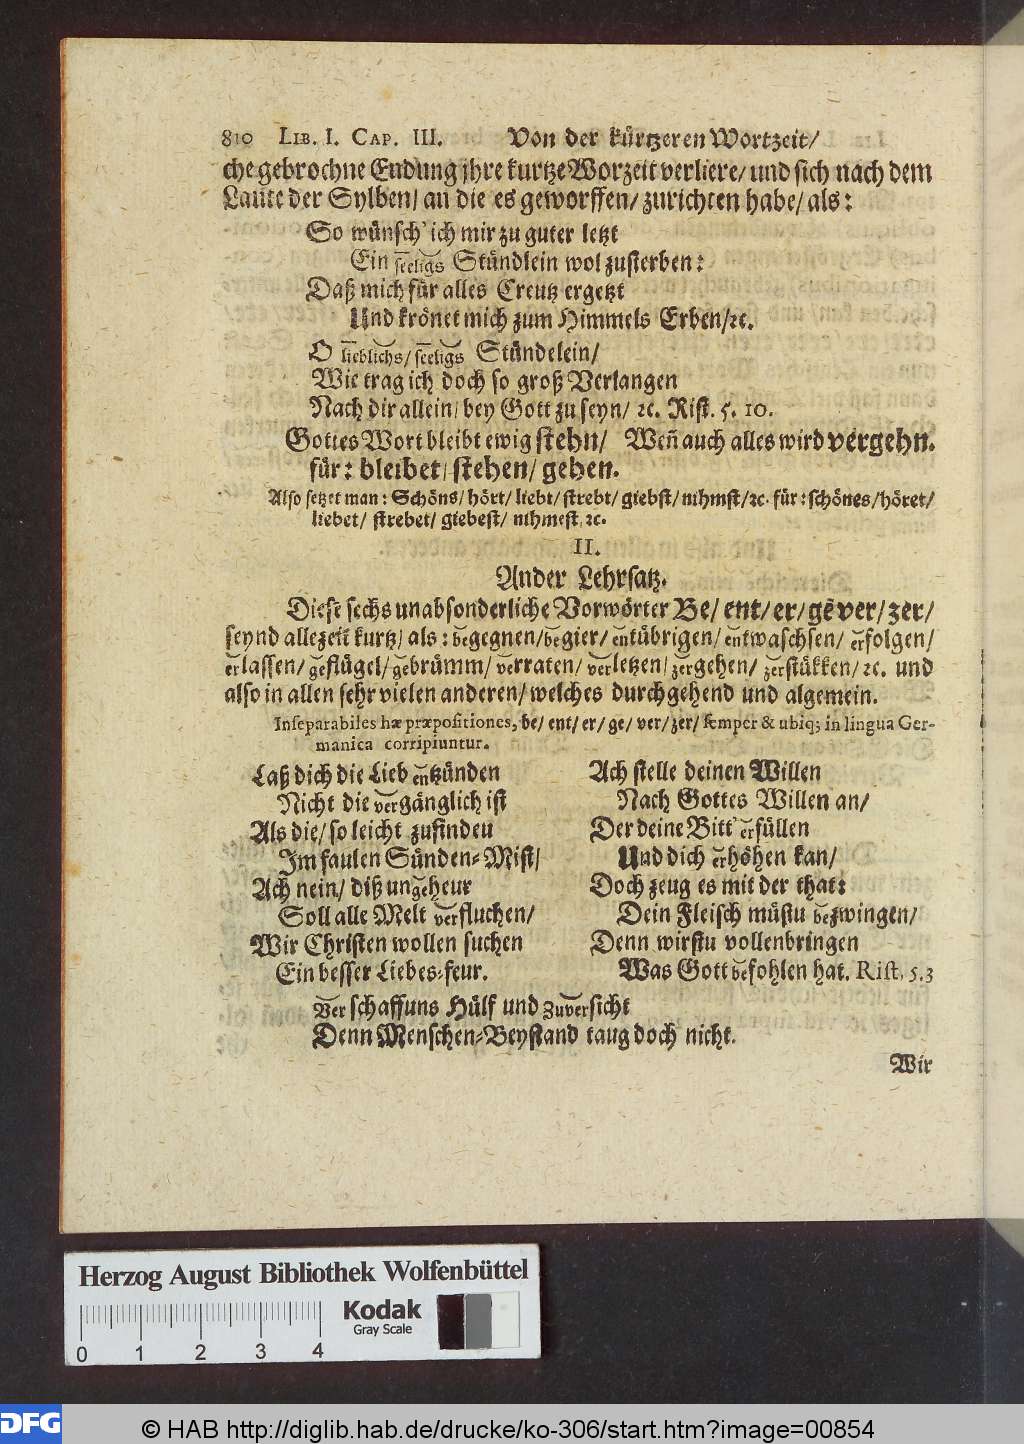 810 LIB. I. CAP. III. Von der kürtzeren Wortzeit/
che gebrochne Endung jhre kurtze Worzeit verliere/ und sich nach dem
Laute der Sylben/ an die es geworffen/ zurichten habe/ als:
So wünsch' ich mir zu guter letzt
Ein seeligs Stündlein wol zusterben:
Daß mich für alles Creutz ergetzt
Und krönet mich zum Himmels Erben/ ꝛc.
O lieblichs/ seeligs Stündelein/
Wie trag ich doch so groß Verlangen
Nach dir allein/ bey Gott zu seyn/ ꝛc. Rist. 5. 10.
Gottes Wort bleibt ewig stehn/ Weñ auch alles wird vergehn.
für: bleibet/ stehen/ gehen.
Also setzet man: Schöns/ hört/ liebt/ strebt/ giebst/ nihmst/ ꝛc. für: schönes/ höret/
liebet/ strebet/ giebest/ nihmest ꝛc.
II.
Ander Lehrsatz.
Diese sechs unabsonderliche Vorwörter Be/ ent/ er/ ge ver/ zer/
seynd allezeit kurtz/ als: begegnen/ begier/ entübrigen/ entwaschsen/ erfolgen/
erlassen/ geflügel/ gebrümm/ verraten/ verletzen/ zergehen/ zerstükken/ ꝛc. und
also in allen sehr vielen anderen/ welches durchgehend und algemein.
Inseparabiles hæ præpositiones, be/ ent/ er/ ge/ ver/ zer/ semper & ubiq; in lingua Ger-
manica corripiuntur.
Laß dich die Lieb entzünden
Nicht die vergänglich ist
Als die/ so leicht zufinden
Jm faulen Sünden-Mist/
Ach nein/ diß ungeheur
Soll alle Welt verfluchen/
Wir Christen wollen suchen
Ein besser Liebes-feur.
Ach stelle deinen Willen
Nach Gottes Willen an/
Der deine Bitt' erfüllen
Und dich erhöhen kan/
Doch zeug es mit der that:
Dein Fleisch müstu bezwingen/
Denn wirstu vollenbringen
Was Gott befohlen hat. Rist. 5. 3
Verschaff uns Hülf und Zuversicht
Denn Menschen-Beystand taug doch nicht.
Wir
Herzog August Bibliothek Wolfenbüttel
Kodak
Gray Scale
0 1 2 3 4
DFG
© HAB http://diglib.hab.de/drucke/ko-306/start.htm?image=00854